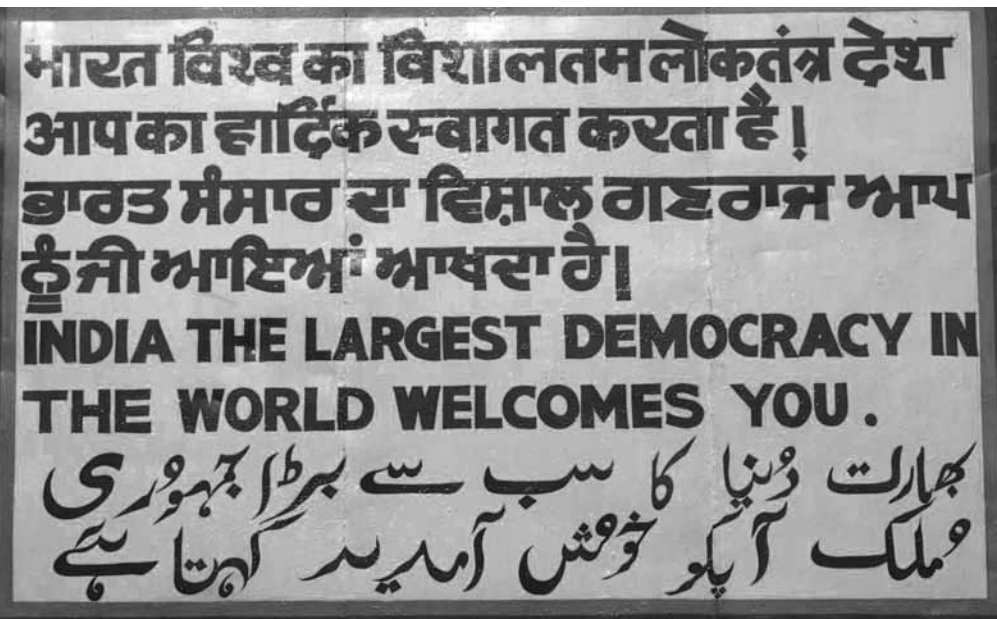 भारत विश्व का विशालतम लोकतंत्र देश
आप का हार्दिक स्वागत करता है।
ਭਾਰਤ ਸੰਸਾਰ ਦਾ ਵਿਸ਼ਾਲ ਗਣਰਾਜ ਆਪ
ਨੂੰ ਜੀ ਆਇਆਂ ਆਖਦਾ ਹੈ।
INDIA THE LARGEST DEMOCRACY IN
THE WORLD WELCOMES YOU.
بھارت دُنیا کا سب سے بڑا جمہُوری
مُلک آپکو خوُش آمدید کہتا ہے